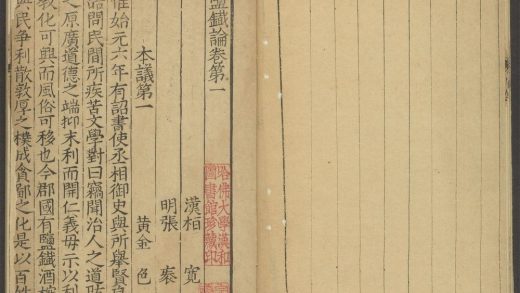 鹽鐵論卷第一
哈佛大學漢和
圖書館珍藏印
漢桓寬
明張
本議第一 黃金色
惟始元六年有詔書使丞相御史與所舉賢良
語問民間所疾苦文學對曰竊聞治人之道防
之原廣道德之端抑末利而開仁義毋示以利
教化可興而風俗可移也今郡國有鹽鐵酒榷
與民爭利散敦厚之樸成貪鄙之化是以百姓